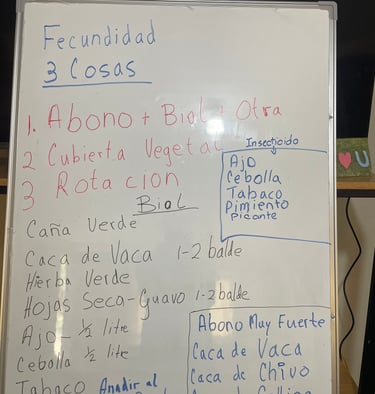 Fecundidad
3 Cosas
1. Abono + Biol + Otra
2 Cubierta Vegetal
3 Rotacion
Insecticido
Ajo
Cebolla
Tabaco
Pimiento
Picante
Biol
Caña Verde
Caca de Vaca 1-2 balde
Hierba Verde
Hojas Seca-Guavo 1-2 balde
Ajo - ½ litre
Cebolla ½ lite
Tabaco Anadir al
Abono Muy Fuerte
Caca de Vaca
Caca de Chivo
U